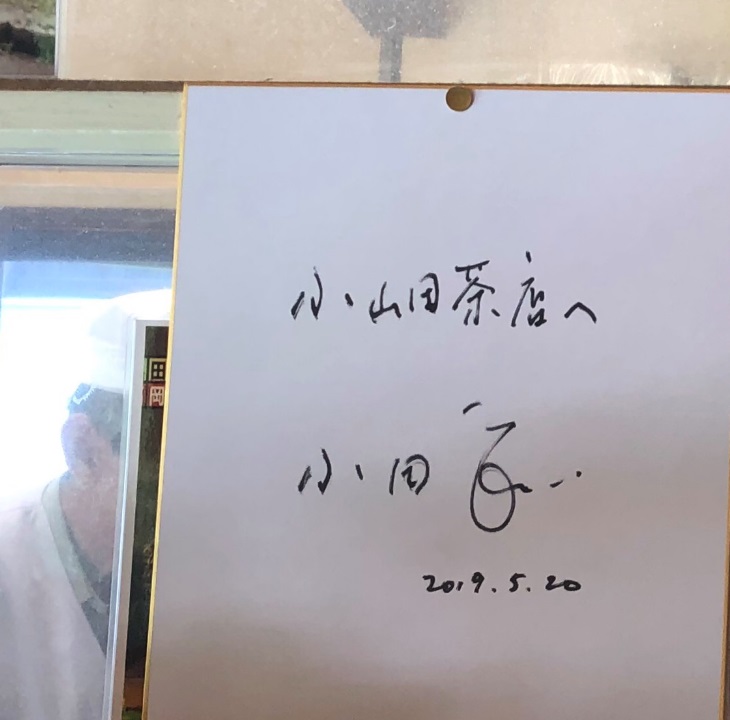 小山田茶店へ
小田
2019.5.20
田
岡